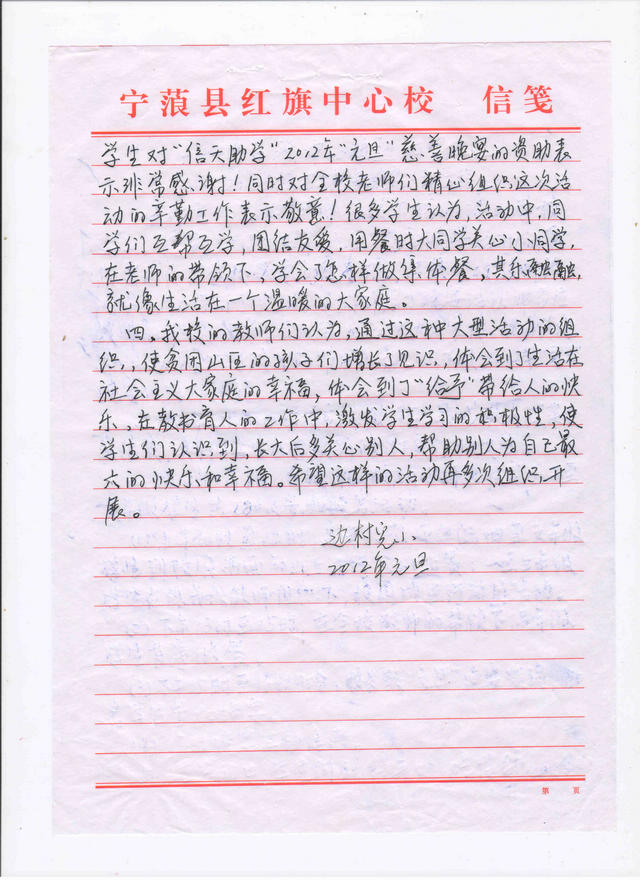 宁蒗县红旗中心校 信笺
学生对"信天助学"2012年"元旦"慈善晚宴的资助表
示非常感谢!同时对全校老师们精心组织这次活
动的辛勤工作表示敬意!很多学生认为,活动中,同
学们互帮互学,团结友爱,用餐时大同学关心小同学,
在老师的带领下,学会了怎样做集体餐,其乐融融,
就像生活在一个温暖的大家庭。
四、我校的教师们认为,通过这种大型活动的组
织,使贫困山区的孩子们增长了见识,体会到了生活在
社会主义大家庭的幸福,体会到了"给予"带给人的快
乐,在教书育人的工作中,激发学生学习的积极性,使
学生们认识到,长大后多关心别人,帮助别人为自己最
大的快乐和幸福。希望这样的活动再多次组织开
展。
边村完小
2012年元旦
第 页